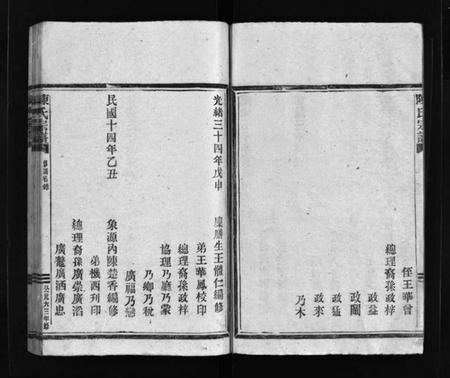 陳氏宗譜
侄王華曾
總理裔孫政梓
政益
政闖
政猛
政來
乃木
光緒三十四年戊申
廩膳生王體仁編修
弟王華鳳校印
總理裔孫政梓
協理乃廳乃蒙
乃鄉乃稅
廣福乃戀
民國十四年乙丑
象源內陳楚香編修
弟概西刋印
總理裔孫廣崇廣滔
廣鰲廣洒廣忠
陳氏宗譜